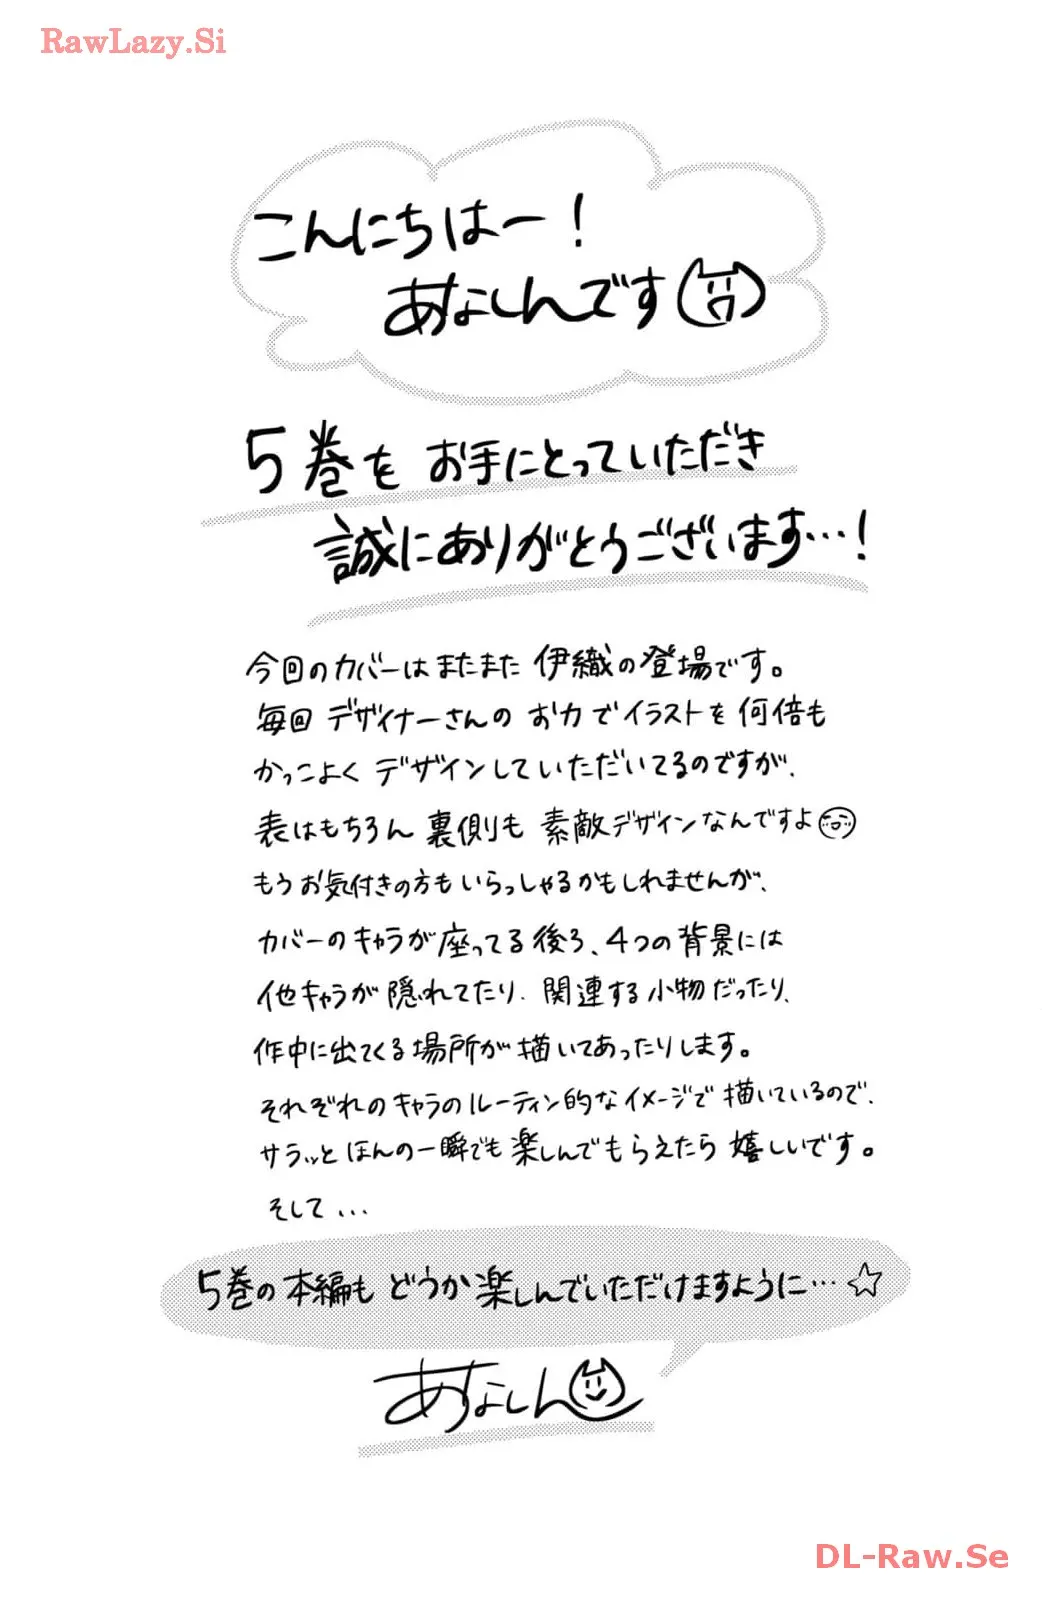 RawLazy.Si
こんにちはー!
あなしんです
5巻を お手にとっていただき
誠にありがとうございます…!
今回のカバーはまたまた 伊織の登場です。
毎回 デザイナーさんの お力でイラストを 何倍も
かっこよく デザインしていただいてるのですが、
表はもちろん 裏側も 素敵デザインなんですよ
もうお気付きの方もいらっしゃるかもしれませんが、
カバーのキャラが座ってる後ろ、4つの背景には
他キャラが隠れてたり、関連する小物だったり、
作中に出てくる場所が描いてあったりします。
それぞれのキャラのルーティン的なイメージで描いているので、
サラッとほんの一瞬でも楽しんでもらえたら嬉しいです。
そして...
5巻の本編もどうか楽しんでいただけますように…☆
あなしん
DL-Raw.Se